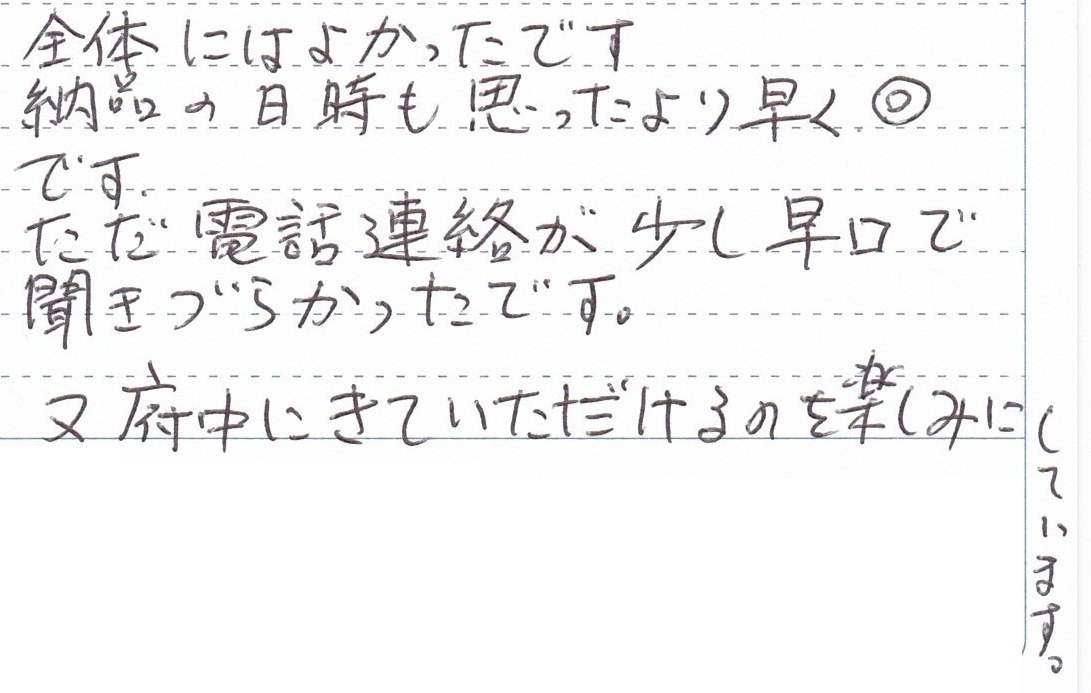 全体にはよかったです
納品の日時も思ったより早く◎
です.
ただ電話連絡が少し早口で
聞きづらかったです。
又府中にきていただけるのを楽しみに
しています。